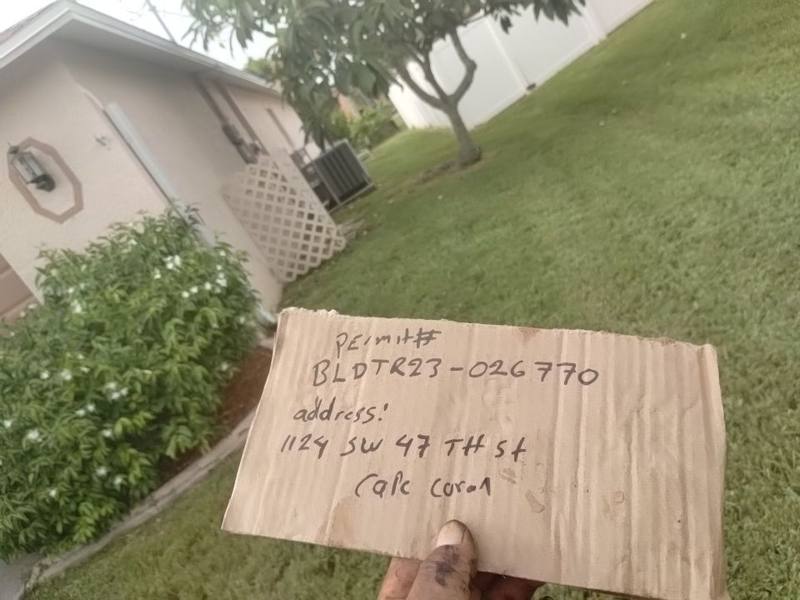 PErmit#
BLDTR23-026770
address:
1124 SW 47 TH St
Cape Coral